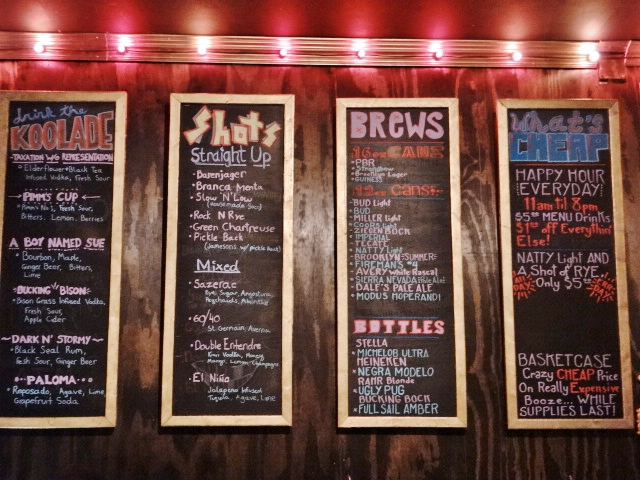 drink the
KOOLADE
-TAXATION W/O REPRESENTATION
• Elderflower + Black Tea
Infused Vodka, Fresh Sour
PIMM'S CUP
• Pimm's No. 1, Fresh Sour,
Bitters, Lemon, Berries
A BOY NAMED SUE
• Bourbon, Maple,
Ginger Beer, Bitters,
Lime
BUCKING BISON
• Bison Grass Infused Vodka,
Fresh Sour,
Apple Cider
~DARK N' STORMY~
• Black Seal Rum,
Fresh Sour, Ginger Beer
-PALOMA-
• Reposado, Agave, Lime
Grapefruit Soda
Shots
Straight Up
• Barenjager
• Branca Menta
• Slow N' Low
• Rock N Rye
• Green Chartreuse
• Pickle Back
(Jamesons w/ pickle back)
Mixed
• Sazerac
Rye, Sugar, Angostura,
Peychauds, Absinthe
• 60/40
St. Germain, Averna
• Double Entendre
Kiwi Vodka, Honey,
• El Niño
Jalapeno Infused
Tequila, Agave, Lime
BREWS
16oz CANS
• PBR
• Strongbow
• Brooklyn Lager
• GUINESS
12oz CANS:
• BUD Light
• BUD
• MILLER Light
• COORS Light
• ZIEGEN BOCK
• IMPERIAL
• TECATE
• NATTY Light
• BROOKLYN SUMMER
• FIREMAN'S #4
• AVERY White Rascal
• SIERRA NEVADA Pale Ale
• DALE'S PALE ALE
• MODUS HOPERANDI
BOTTLES
STELLA
• MICHELOB ULTRA
HEINEKEN
• NEGRA MODELO
RAHR Blonde
• UGLY PUG
BUCKING BOCK
• FULL SAIL AMBER
What's
CHEAP
HAPPY HOUR
EVERYDAY!
11am til 8pm
MENU Drinks
$1 off Everythin'
Else!
NATTY Light AND
A Shot of RYE
Only $5
BASKETCASE
Crazy CHEAP Price
On Really Expensive
Booze... WHILE
SUPPLIES LAST!